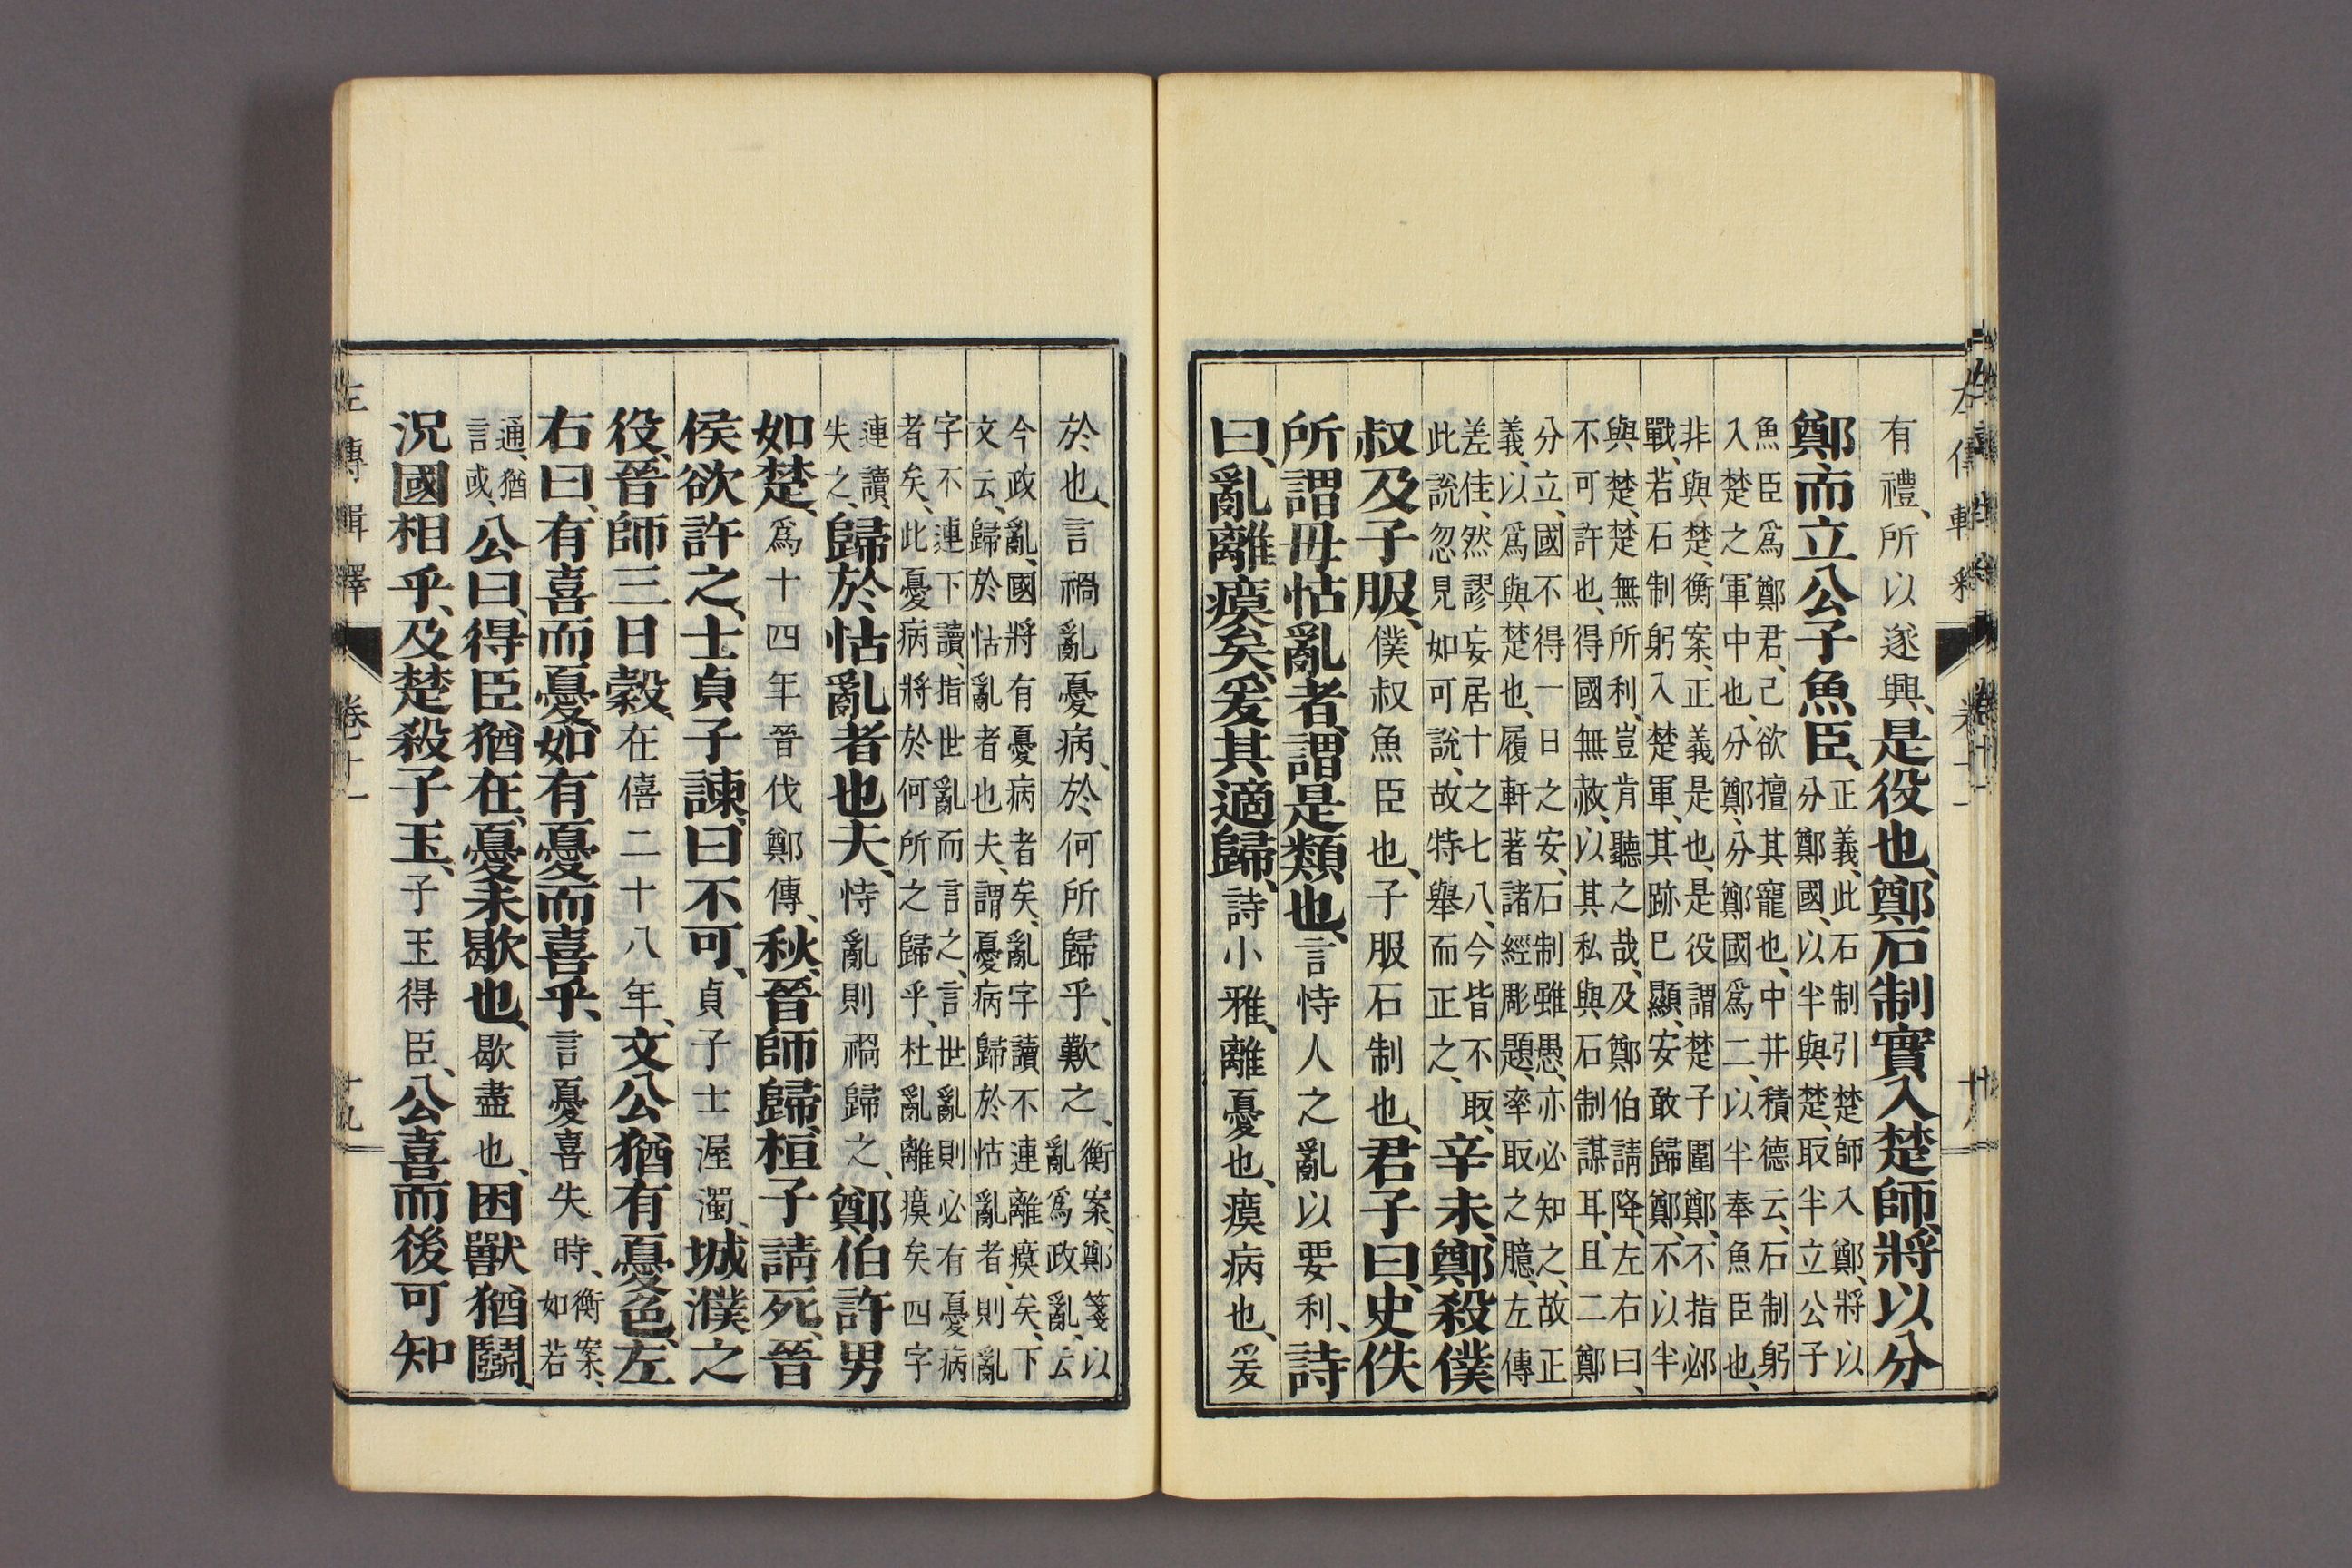 有禮、所以遂興、是役也、鄭石制實入楚師、將以分
鄭而立公子魚臣、
正義、此石制引楚師入鄭、將以
分鄭國、以半與楚、取半立公子
魚臣爲鄭君、己欲擅其寵也、中井積德云、石制躬
入楚之軍中也、分鄭、分鄭國爲二、以半奉魚臣也、
非與楚、衡案、正義是也、是役謂楚子圍鄭、不指邲
戰、若石制躬入楚軍、其跡已顯、安敢歸鄭、不以半
與楚、楚無所利、豈肯聽之哉、及鄭伯請降、左右曰、
不可許也、得國無赦、以其私與石制謀耳、且二鄭
分立、國不得一日之安、石制雖愚、亦必知之、故正
義、以爲與楚也、履軒著諸經彫題、率取之臆、左傳
差佳、然謬妄居十之七八、今皆不取、
此說忽見如可說、故特舉而正之、
辛未、鄭殺僕
叔及子服、僕叔魚臣也、子服石制也、君子曰、史佚
所謂毋怙亂者、謂是類也、言恃人之亂以要利、詩
曰、亂離瘼矣、爰其適歸、詩小雅、離憂也、瘼病也、爰
於也、言禍亂憂病、於何所歸乎、歎之、
衡案、鄭箋以
亂爲政亂、云
今政亂、國將有憂病者矣、亂字讀不連離瘼矣、下
文云、歸於怙亂者也夫、謂憂病歸於怙亂者、則亂
字不連下讀、指世亂而言之、言世亂則必有憂病
者矣、此憂病將於何所之歸乎、杜亂離瘼矣四字
連讀、
失之、
歸於怙亂者也夫、恃亂則禍歸之、鄭伯許男
如楚、爲十四年晉伐鄭傳、秋、晉師歸、桓子請死、晉
侯欲許之、士貞子諫、曰、不可、貞子士渥濁、城濮之
役、晉師三日穀、在僖二十八年、文公猶有憂色、左
右曰、有喜而憂、如有憂而喜乎、言憂喜失時、
衡案、
如若
通、猶
言或、
公曰、得臣猶在、憂未歇也、歇盡也、困獸猶鬭、
況國相乎、及楚殺子玉、子玉得臣、公喜而後可知
左傳輯釋
卷十一
十九